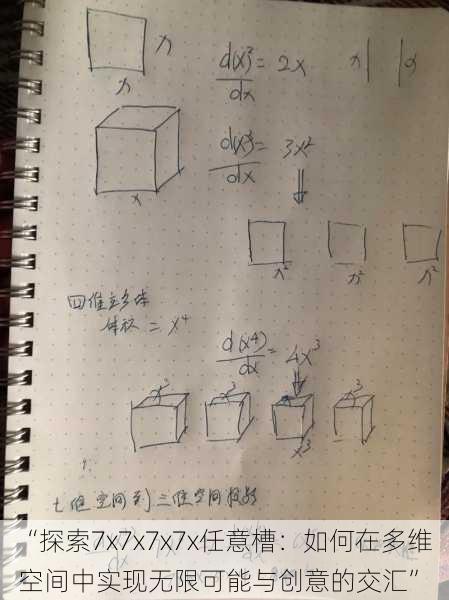 x
x
d(x)² = 2x
dx
x
x
d(x³) = 3x²
dx
x
x² x² x²
四维立方体
体积 = x⁴
d(x⁴) = 4x³
dx
x³ x³ x³
x³
七维空间到三维空间投影
“探索7x7x7x7x任意槽：如何在多维
空间中实现无限可能与创意的交汇”